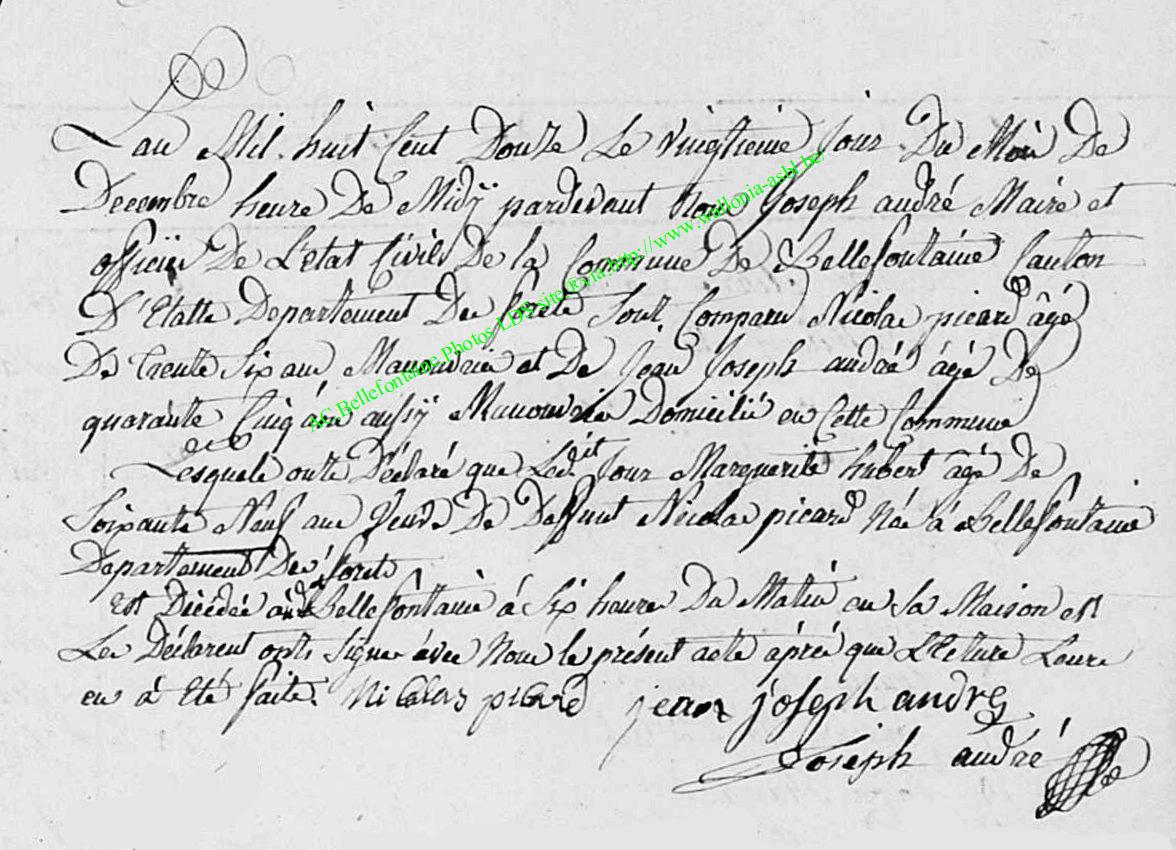 Lan Mil huit Cent Douze Le vingtieme jour Du Mois De
Decembre heure De Midÿ pardevant Nous Joseph andré Maire et
officier De L'etat Civile De la Commune De Bellefontaine Canton
D'Etalle Departement De forets Sont Comparu Nicolas picard âgé
De trente Six ans Manouvrie et De Jean Joseph andré âgé De
quarante Cinq ans aussÿ Manouvrie Domicilié en Cette Commune
Lesquels onts Déclaré que Ledit Jour Marguerite hubert âgé De
Soixante Neuf ans Veuve De Deffunt Nicolas picard Née à Bellefontaine
Departement Des forets
Est Décédée Bellefontaine à Six heures Du Matin en sa Maison et
Les Déclarent onts Signe avec Nous le présent acte après que Lecture Leure
en à Eté faite. Nicolas picard jean joseph andre
Joseph andré
AC Bellefontaine Photos LDS site via http://www.wallonia-asbl.be/